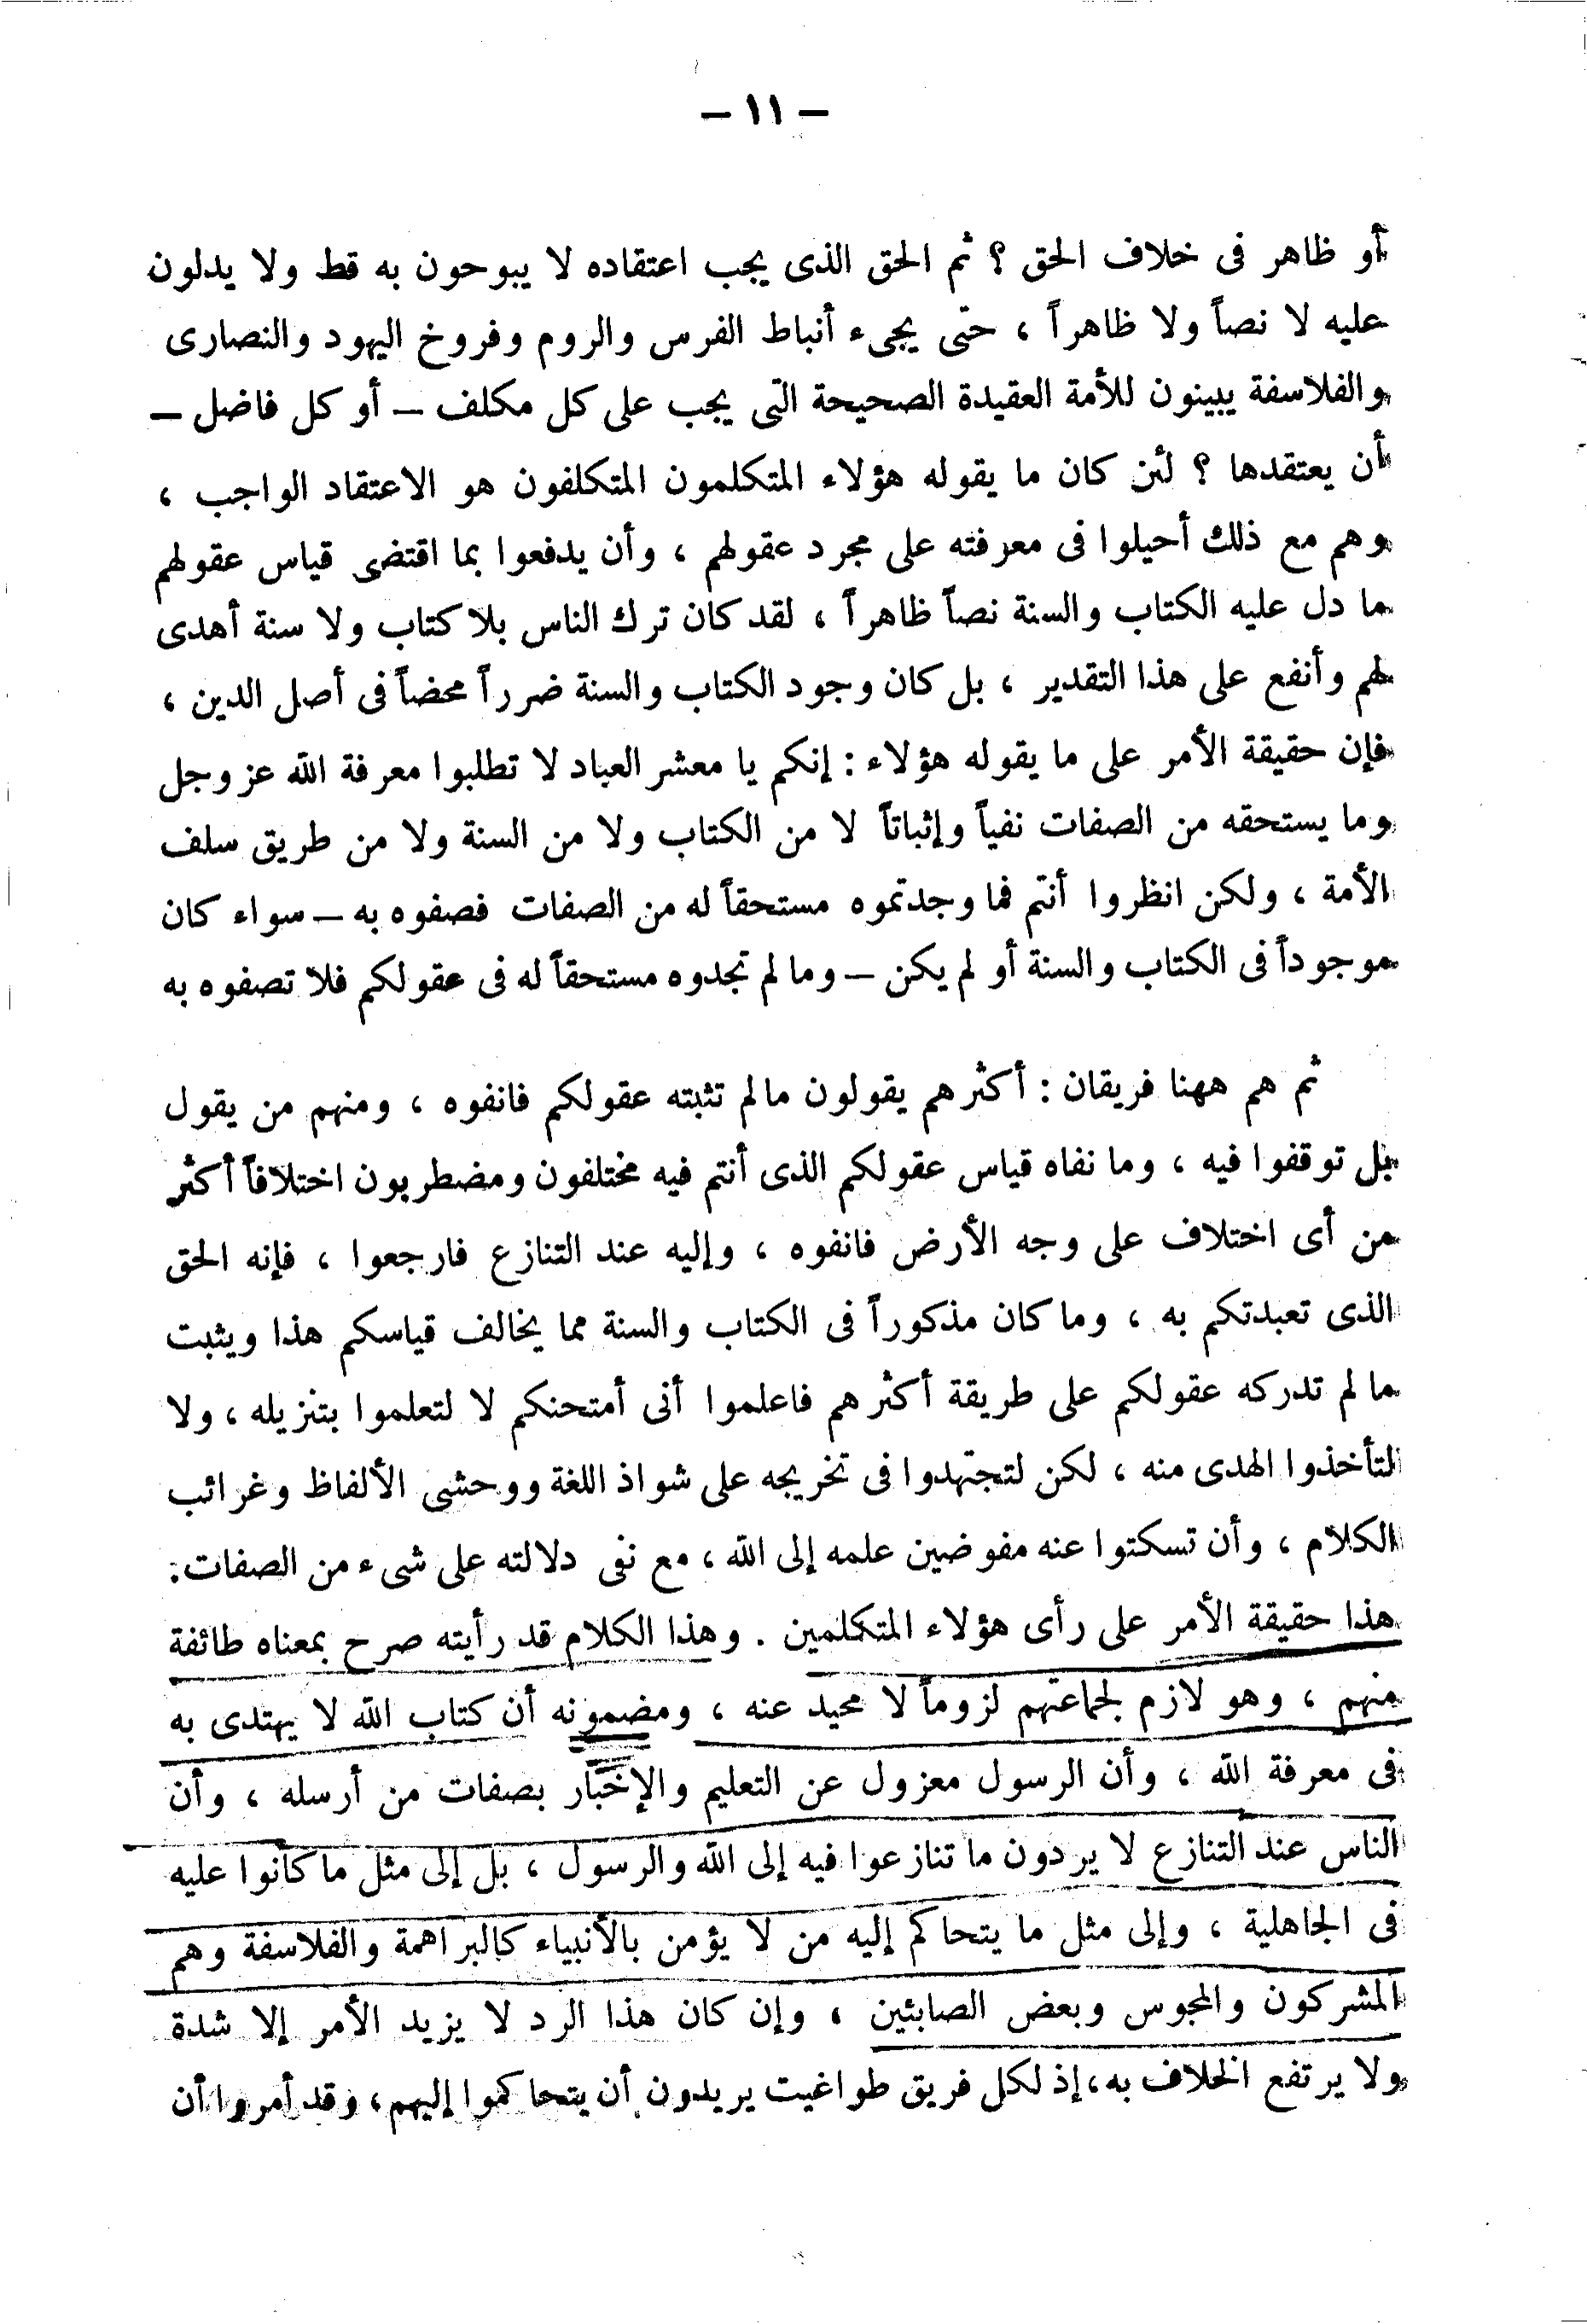 — ١١ —
أو ظاهر فى خلاف الحق ؟ ثم الحق الذى يجب اعتقاده لا يبوحون به قط ولا يدلون
عليه لا نصاً ولا ظاهراً ، حتى يجىء أنباط الفرس والروم وفروخ اليهود والنصارى
والفلاسفة يبينون للأمة العقيدة الصحيحة التى يجب على كل مكلف — أو كل فاضل —
أن يعتقدها ؟ لئن كان ما يقوله هؤلاء المتكلمون المتكلفون هو الاعتقاد الواجب ،
وهم مع ذلك أحيلوا فى معرفته على مجرد عقولهم ، وأن يدفعوا بما اقتضى قياس عقولهم
ما دل عليه الكتاب والسنة نصاً ظاهراً ، لقد كان ترك الناس بلا كتاب ولا سنة أهدى
لهم وأنفع على هذا التقدير ، بل كان وجود الكتاب والسنة ضرراً محضاً فى أصل الدين ،
فإن حقيقة الأمر على ما يقوله هؤلاء : إنكم يا معشر العباد لا تطلبوا معرفة الله عز وجل
وما يستحقه من الصفات نفياً وإثباتاً لا من الكتاب ولا من السنة ولا من طريق سلف
الأمة ، ولكن انظروا أنتم فما وجدتموه مستحقاً له من الصفات فصفوه به — سواء كان
موجوداً فى الكتاب والسنة أو لم يكن — وما لم تجدوه مستحقاً له فى عقولكم فلا تصفوه به
ثم هم ههنا فريقان : أكثرهم يقولون مالم تثبته عقولكم فانفوه ، ومنهم من يقول
بل توقفوا فيه ، وما نفاه قياس عقولكم الذى أنتم فيه مختلفون ومضطربون اختلافاً أكثر
من أى اختلاف على وجه الأرض فانفوه ، وإليه عند التنازع فارجعوا ، فإنه الحق
الذى تعبدتكم به ، وما كان مذكوراً فى الكتاب والسنة مما يخالف قياسكم هذا ويثبت
ما لم تدركه عقولكم على طريقة أكثرهم فاعلموا أنى أمتحنكم لا لتعلموا بتنزيله ، ولا
لتأخذوا الهدى منه ، لكن لتجتهدوا فى تخريجه على شواذ اللغة ووحشى الألفاظ وغرائب
الكلام ، وأن تسكتوا عنه مفوضين علمه إلى الله ، مع نفى دلالته على شىء من الصفات :
هذا حقيقة الأمر على رأى هؤلاء المتكلمين . وهذا الكلام قد رأيته صرح بمعناه طائفة
منهم ، وهو لازم لجماعتهم لزوماً لا محيد عنه ، ومضمونه أن كتاب الله لا يهتدى به
فى معرفة الله ، وأن الرسول معزول عن التعليم والإخبار بصفات من أرسله ، وأن
الناس عند التنازع لا يردون ما تنازعوا فيه إلى الله والرسول ، بل إلى مثل ما كانوا عليه
فى الجاهلية ، وإلى مثل ما يتحاكم إليه من لا يؤمن بالأنبياء كالبراهمة والفلاسفة وهم
المشركون والمجوس وبعض الصابئين ، وإن كان هذا الرد لا يزيد الأمر إلا شدة
ولا يرتفع الخلاف به ، إذ لكل فريق طواغيت يريدون أن يتحاكموا إليهم ، وقد أمروا أن